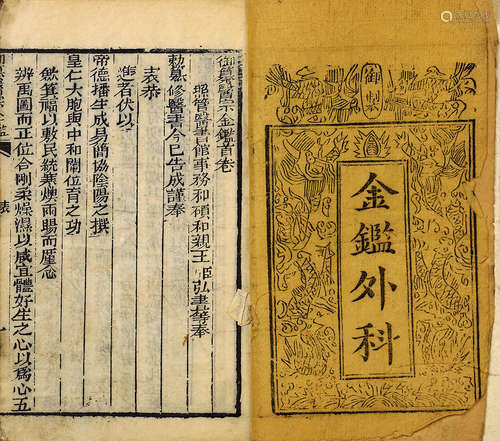 御製
金鑑外科
御纂醫宗金鑑首卷
照管醫書館事務和碩和親王臣弘晝等奉
勅纂修醫書今已告成謹奉
表恭
進者伏以
帝德播生成易簡協陰陽之撰
皇仁大胞與中和闡位育之功
斂箕福以敷民統寒燠雨暘而厪念
辨禹圖而正位合剛柔燥濕以咸宜體好生之心以爲心五
表
一